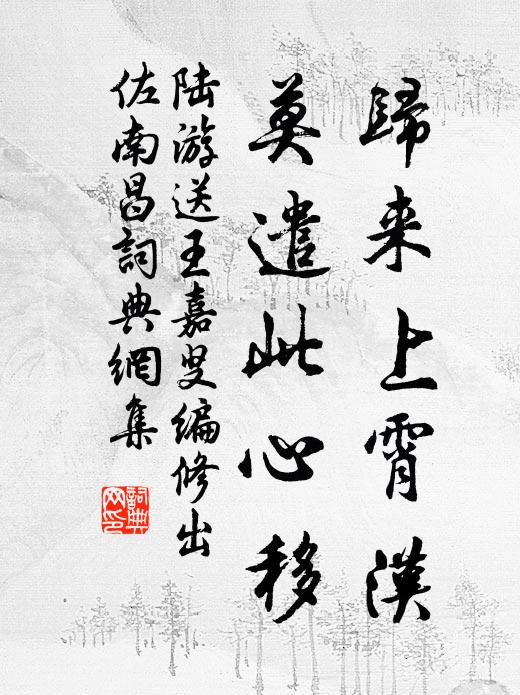 歸来上霄漢
莫遣此心移
陆游送王嘉叟编修出
佐南昌詞典網集
詞典
网印